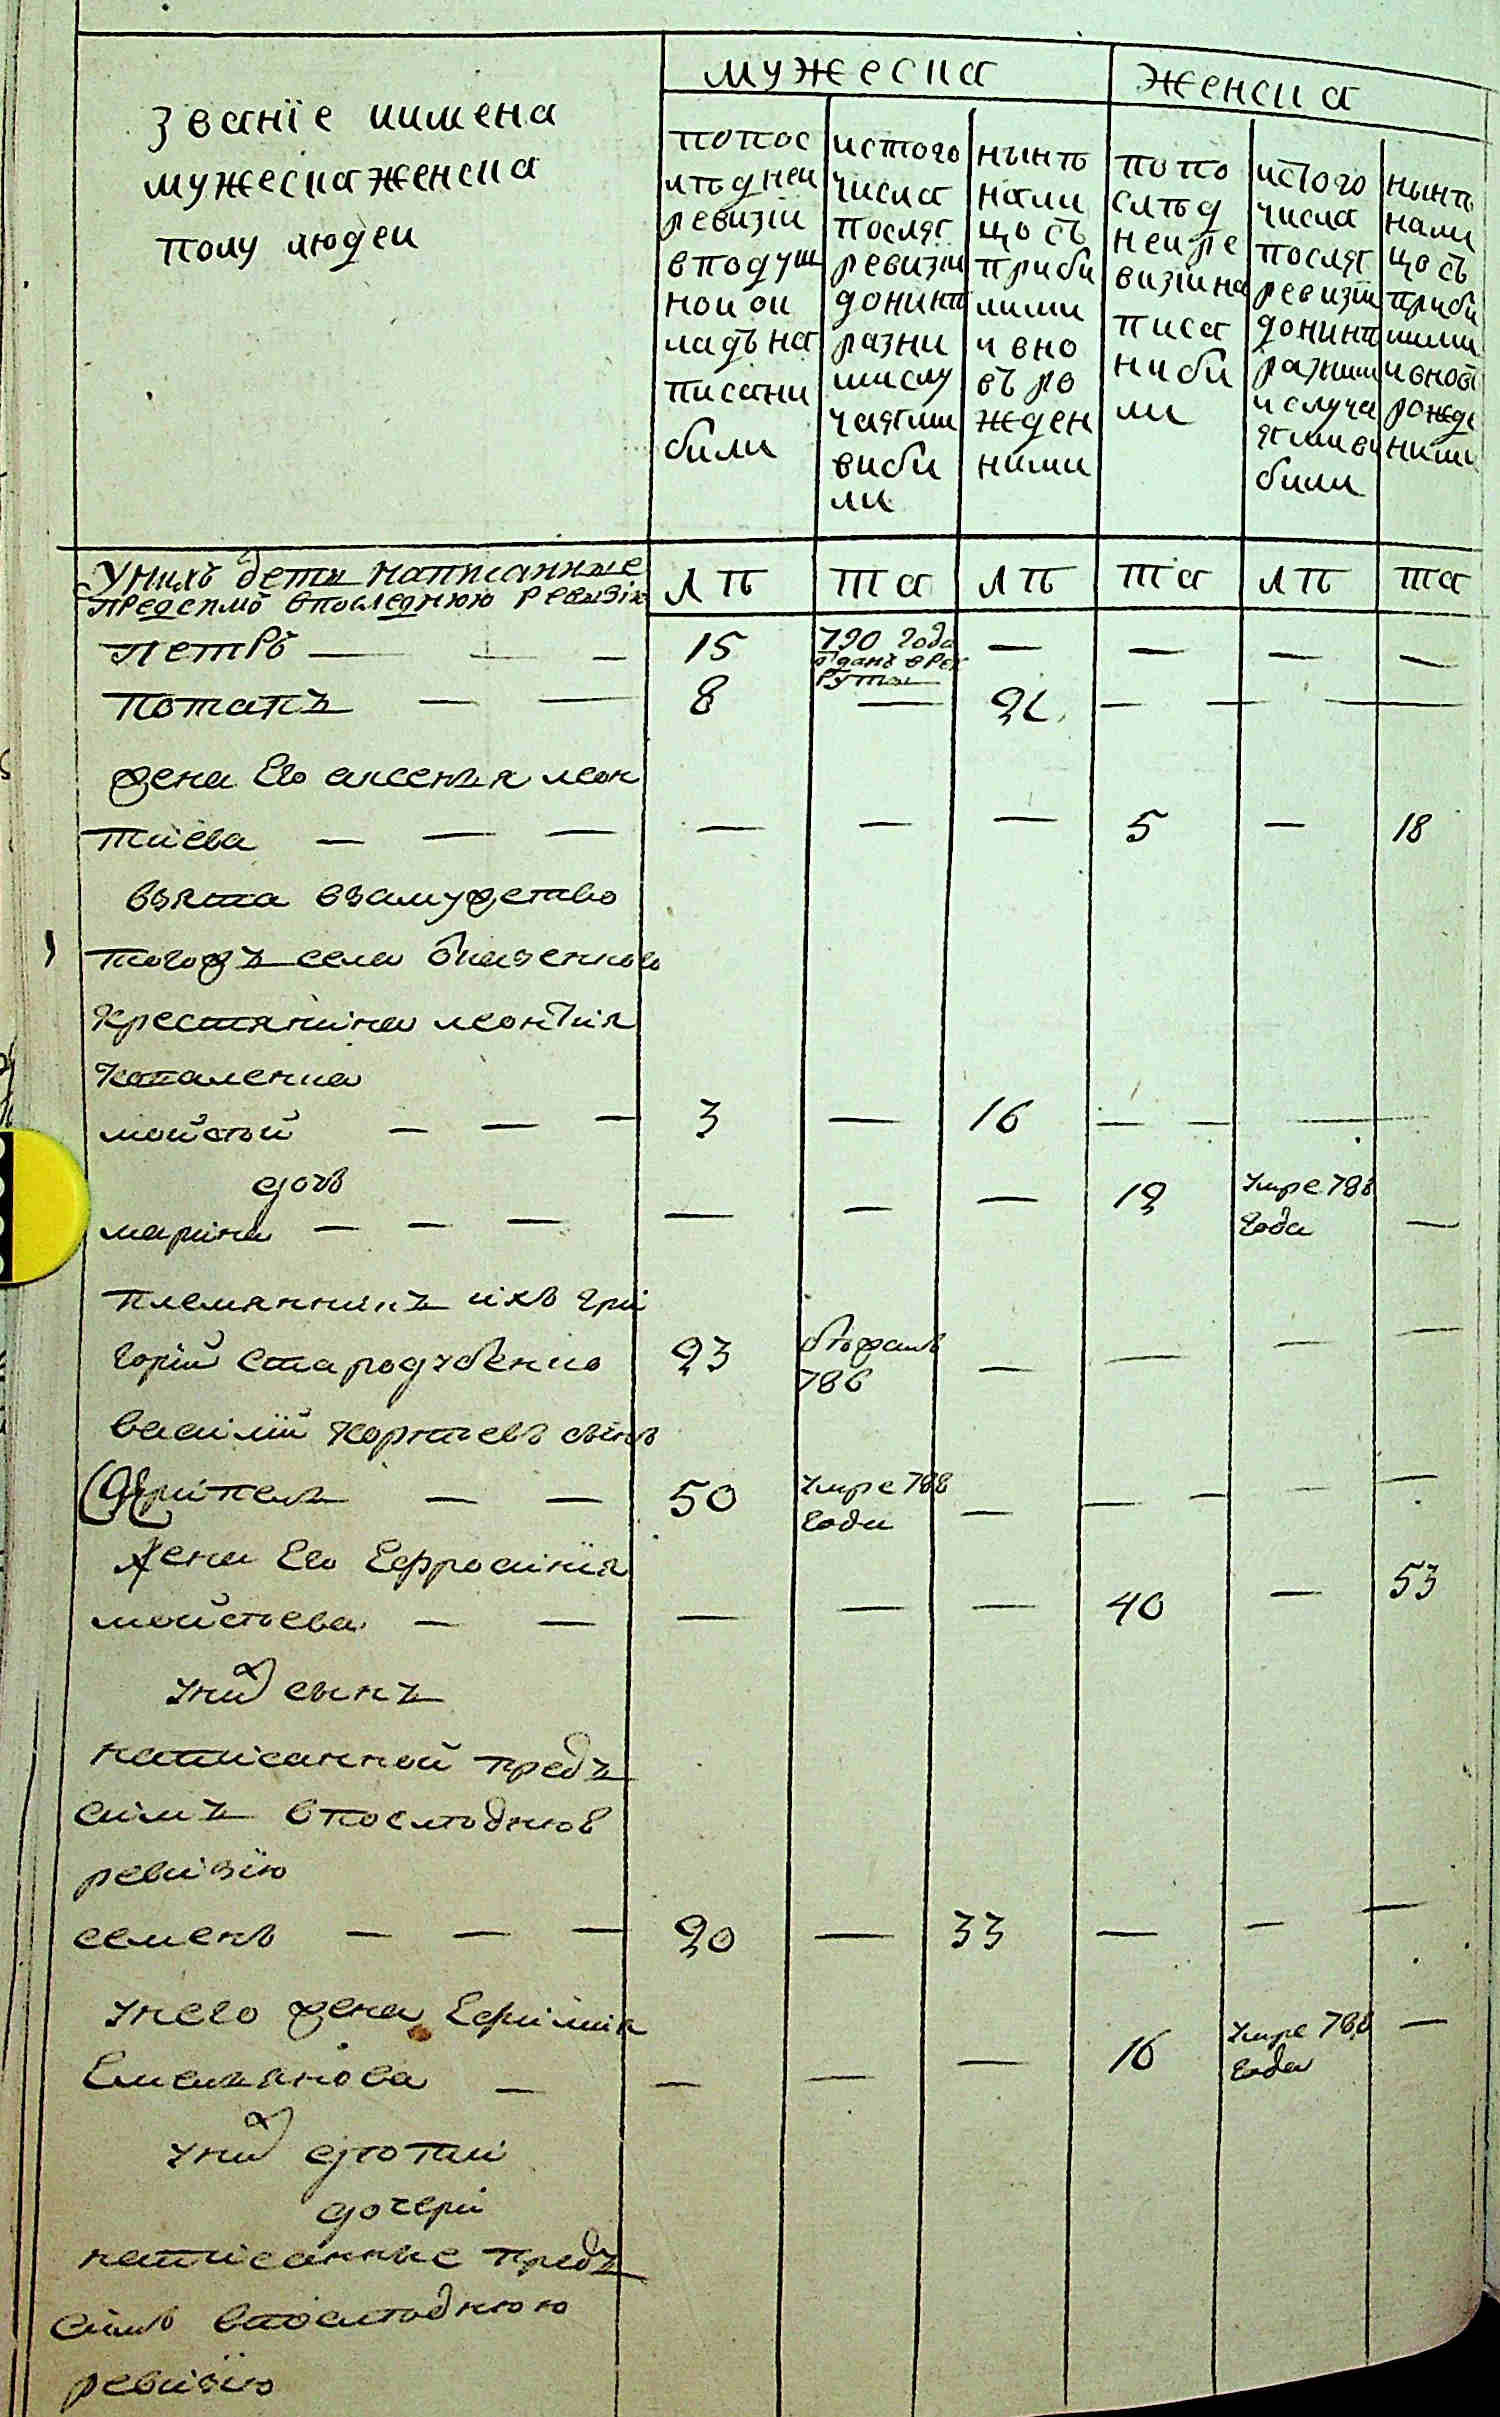 мужеска
женска
званїе иимена
мужескаженска
полу людеи
попос
лѣднеи
ревизїи
вподуш
нои ок
ладъ на
писани
били
истого
числа
послѧг
ревизїи
донинѣ
разни
мислу
чаѧгми
виби
ли
нынѣ
нали
цо съ
приби
лими
и вно
въ ро
жден
ними
по по
слѣд
неи ре
визїи на
писа
ни би
ли
истого
числа
послѧг
ревизїи
донинѣ
разним
и случа
ѧгми ви
били
нынѣ
нали
цо съ
приби
лими
и вновь
рожде
ними
Унихъ дети написанные
предсимъ впоследнюю ревизїю
лѣ та лѣ та лѣ та
петръ — — — 15 790 года — — — —
отданъ врек
руты
потапъ — — 8 — 21 — — — —
жена Его аксенья леон
тиева — — — — — — 5 — 18
взята взамужство
тогожъ села
крестянина леонтия
коваленка
мойсей — — — 3 — 16 — — — —
дочъ
марина — — — — — — 12 умре 788
года —
племянникъ ихъ гри
горїй стародубенко 23 — — — —
786
василїй корнѣевъ сынъ
— — 50 умре 788
года — — — — —
жена Его Ефросинїя
мойсѣева — — — — — 40 — 53
унихъ сынъ
написанной предъ
симъ впослѣднюю
ревизїю
семенъ — — — 20 — 33 — — —
унего жена Ефимия
Емельянова — — — — 16 умре 788
года —
унихъ
дочери
написанные предъ
симъ впослѣднюю
ревизїю